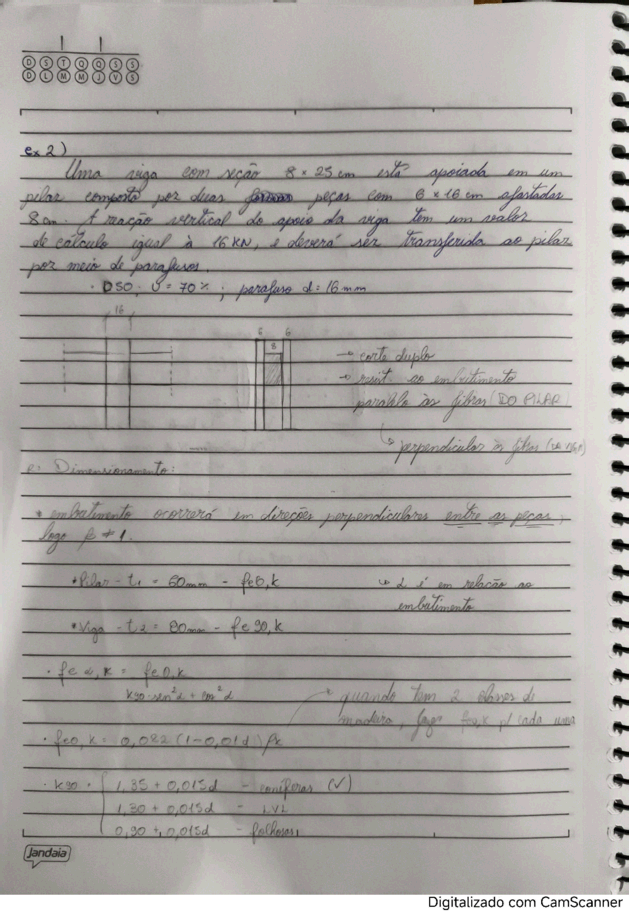 D S T Q Q S S
D L M M J V S
ex 2)
Uma viga com seção 8 x 25 cm está apoiada em um
pilar composto por duas peças com 6 x 16 cm afastadas
8 cm. A reação vertical do apoio da viga tem um valor
de cálculo igual à 16 KN, e deverá ser transferida ao pilar
por meio de parafusos.
• D50; U = 70%; parafuso d = 16 mm
16
6 6
8
→ corte duplo
→ resist. ao embutimento
paralelo às fibras (DO PILAR)
↳ perpendicular às fibras
Dimensionamento:
* embutimento ocorrerá em direções perpendiculares entre as peças,
logo β ≠ 1.
• Pilar - t1 = 60mm - fe0,k
↳ α é em relação ao
embutimento
• Viga - t2 = 80mm - fe90,k
• feα,k = fe0,k
k90·sen²α + cos²α
quando tem 2 de
madeira, faço p/ cada uma
• fe0,k = 0,082 (1-0,01d) ρk
• k90 = { 1,35 + 0,015d - coníferas (✓)
1,30 + 0,015d - LVL
0,90 + 0,015d - folhosas
Jandaia
Digitalizado com CamScanner